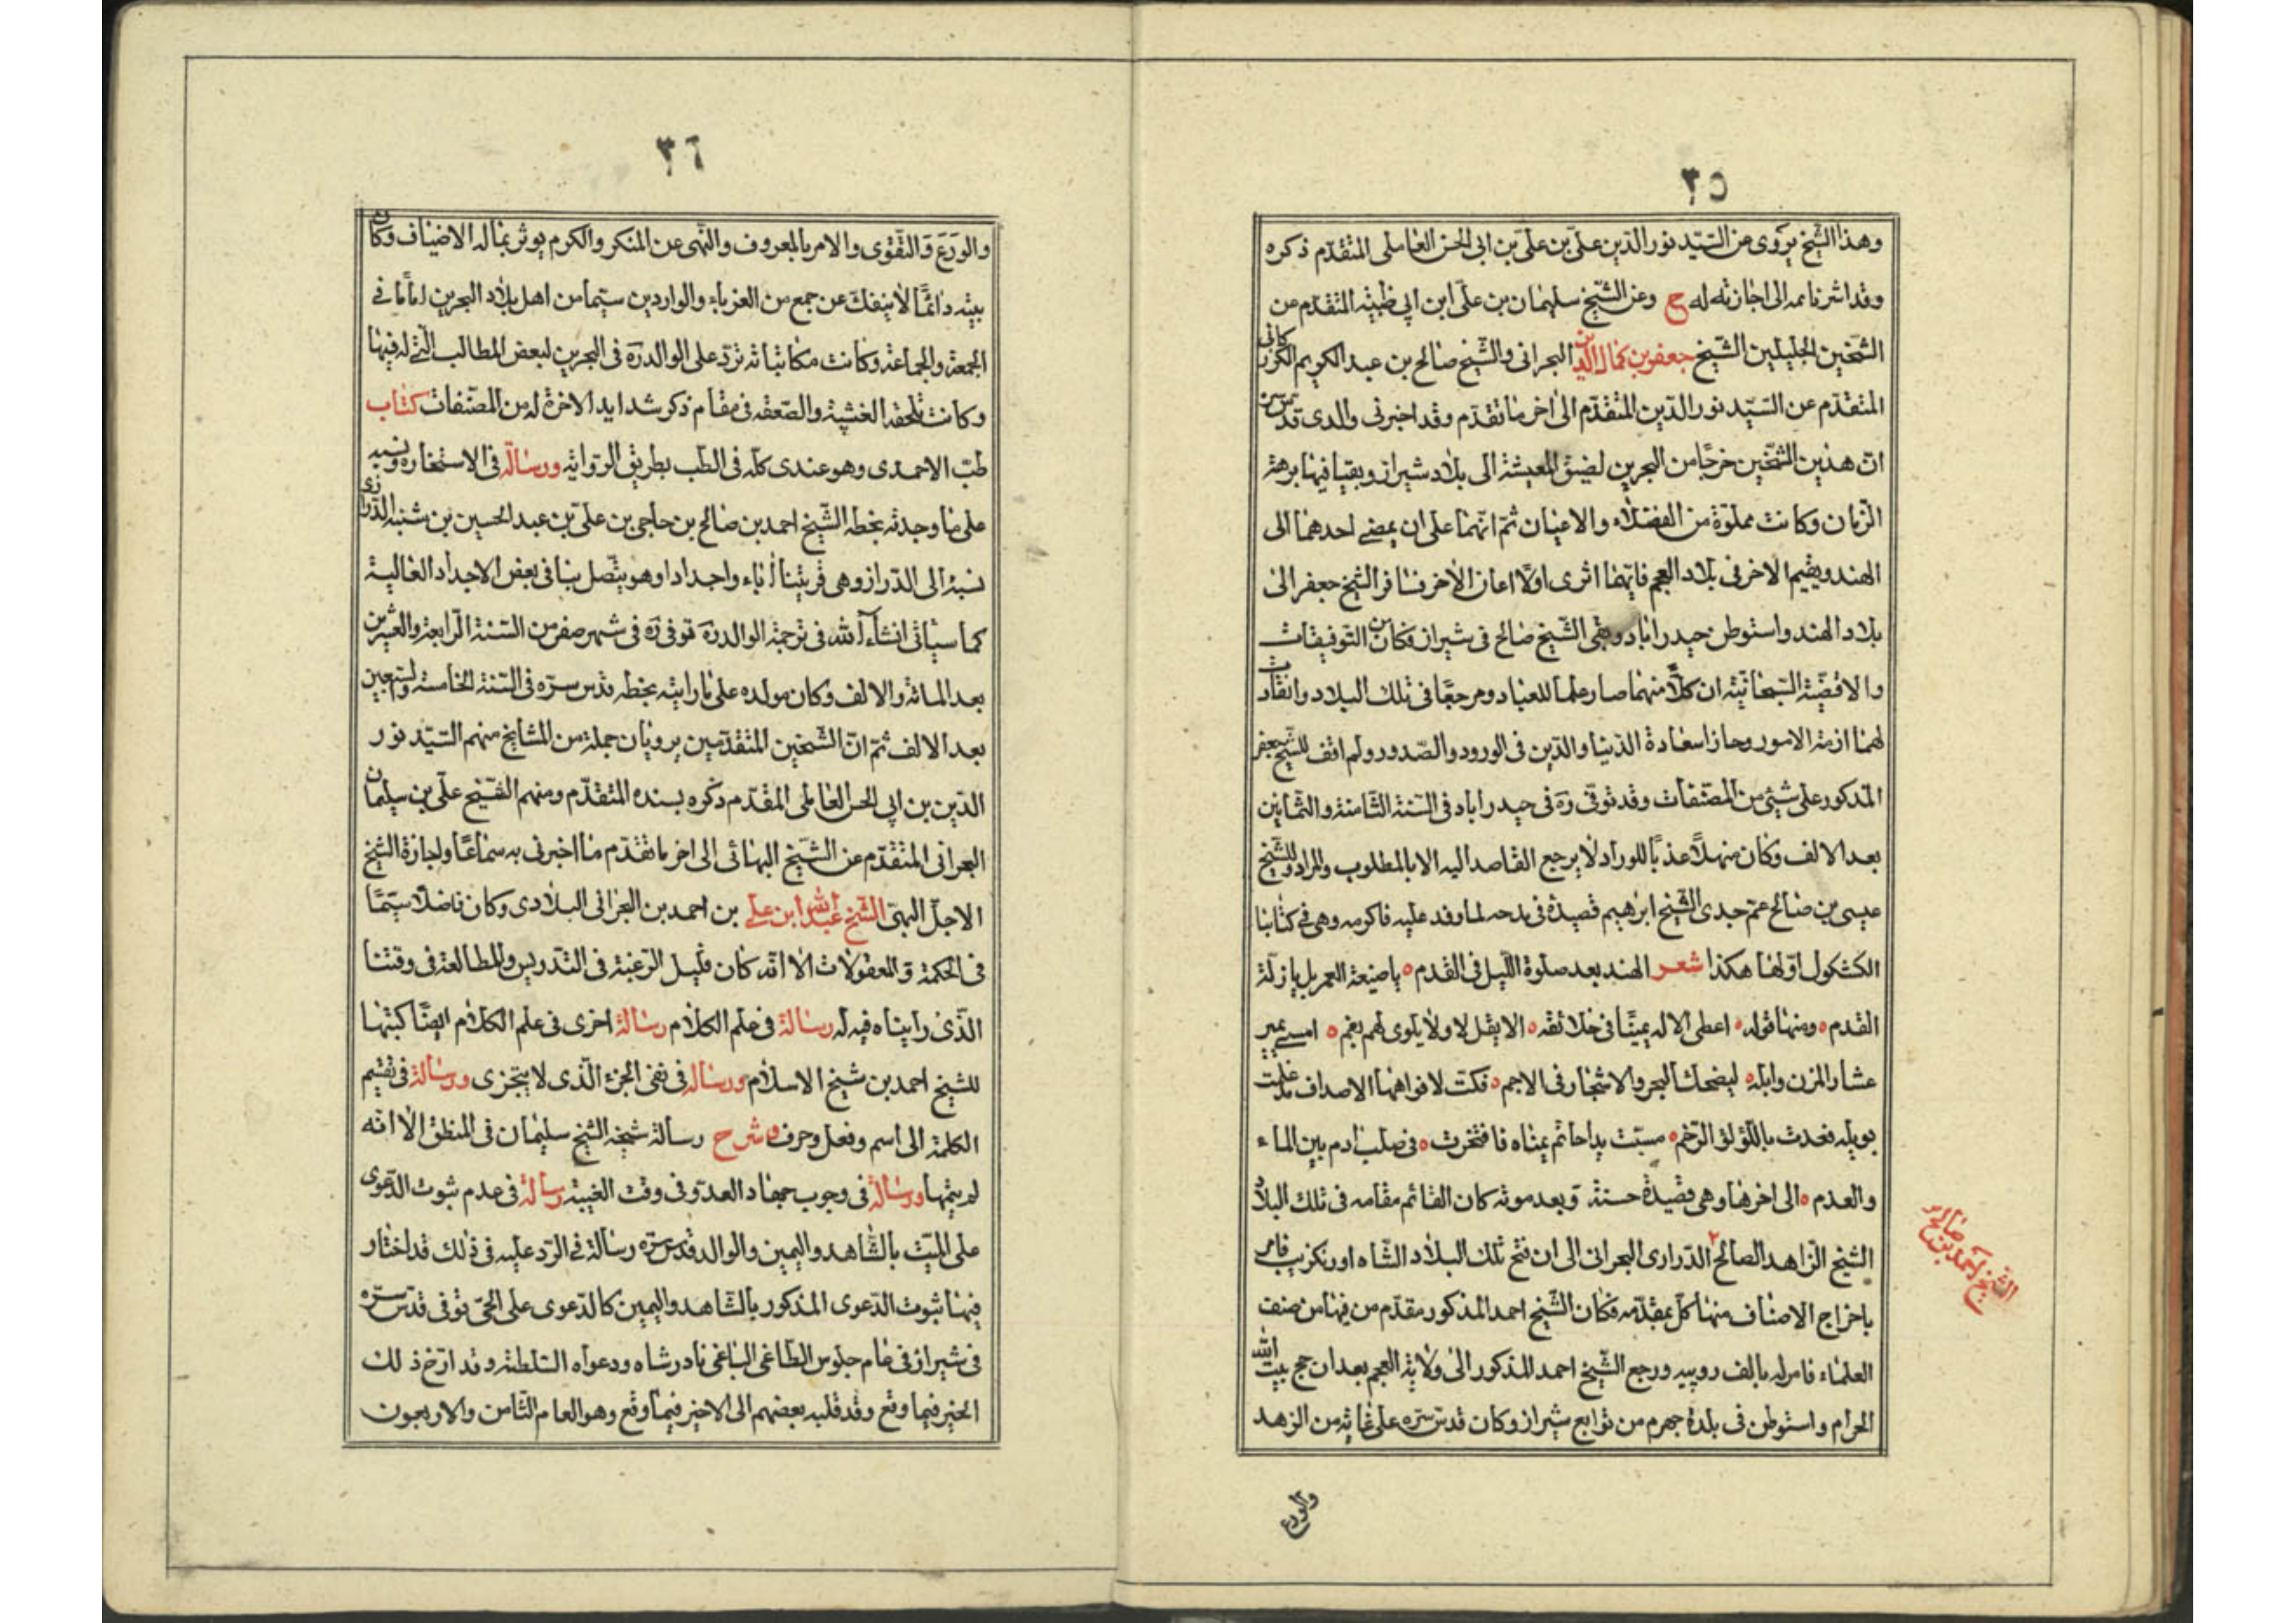 ٣٥
وهذا الشيخ يروى عن السّيد نور الدّين علىّ بن علىّ بن ابى الحسن العاملى المتقدّم ذكره
وقد اشرنا ثمه الى اجازته له ح وعن الشّيخ سليمان بن علىّ ابن ابى ظبيه المتقدّم عن
الشّيخين الجليلين الشّيخ جعفر بن كمال الدين البحرانى والشّيخ صالح بن عبد الكريم الكرزكانى
المتقدّم عن السّيد نور الدّين المتقدّم الى اخر ما تقدّم وقد اخبرنى والدى قدّس سره
انّ هذين الشّيخين خرجا من البحرين لضيق المعيشة الى بلاد شيراز وبقيا فيها برهة
الزّمان وكانت مملوّة من الفضلاء والاعيان ثمّ انّهما على ان يمضى احدهما الى
الهند ويقيم الاخر فى بلاد العجم فايّهما اثرى اولا اعان الاخر فسافر الشّيخ جعفر الى
بلاد الهند واستوطن حيدراباد وبقى الشّيخ صالح فى شيراز فكان من التوفيقات
والاقضيّة السّبحانيّة ان كلّا منهما صار علما للعباد ومرجعا فى تلك البلاد وانقادت
لهما ازمة الامور وحازا سعادة الدّنيا والدّين فى الورود والصّدور ولم اقف للشّيخ جعفر
المذكور على شىء من المصنّفات وقد توفى ره فى حيدراباد فى السّنة الثّامنة والثّمانين
بعد الالف وكان منهلا عذبا للوراد لا يرجع القاصد اليه الا بالمطلوب والمراد وللشّيخ
عيسى بن صالح عمّ جدى الشّيخ ابرهيم قصيدة فى مدحه لما وفد عليه فاكرمه وهى فى كتابنا
الكشكول اوّلها هكذا شعر الهند بعد صلوة اللّيل فى القدم ه ياضيعة العمر بل يازلّة
القدم ه ومنها قوله ه اعطى الاله يمينّا فى خلائقه ه الا يقل لا ولا يلوى لهم بفم ه امسى يمير
عشار المزن وابله ه ليضحك البحر والاشجار فى الاجم ه فكت لافواهها الاصداف مذ علمت
بوبله فغدت باللّؤلؤ الرّخم ه مسّت يدا حاتم يمناه فافتخرت ه فى صلب ادم بين الماء
والعدم ه الى اخرها وهى قصيدة حسنة وبعد موته كان القائم مقامه فى تلك البلاد
الشّيخ الزّاهد الصالح ٢ الدّرازى البحرانى الى ان فتح تلك البلاد الشّاه اورنكزيب فامر
باخراج الاصناف منها كل بمقدّمه فكان الشّيخ احمد المذكور مقدّم من فيها من صنف
العلماء فامر له بالف روپيه ورجع الشّيخ احمد المذكور الى ولاية العجم بعد ان حج بيت الله
الحرام واستوطن فى بلدة جهرم من توابع شيراز وكان قدّس سّره على غاية من الزهد
والورع
الشيخ احمد بن صالح
٣٦
والورع والتّقوى والامر بالمعروف والنّهى عن المنكر والكرم يوثر بماله الاضياف وكان
بيته دائمّا لا ينفكّ عن جمع من الغرباء والواردين سيّما من اهل بلاد البحرين امامّا فى
الجمعة والجماعة وكانت مكاتباته ترد على الوالد ره فى البحرين لبعض المطالب الّتى له فيها
وكانت تلحقه الغشية والصّعقه فى مقام ذكر شدايد الاخرة له من المصنّفات كتاب
طبّ الاحمدى وهو عندى كلّه فى الطب بطريق الرّوايه ورسالة فى الاستخاره ونسبه
على ما وجدته بخطه الشّيخ احمد بن صالح بن حاجى بن علىّ بن عبد الحسين بن شنبه الدّرازى
نسبة الى الدّراز وهى قريتنا اباء واجدادا وهو يتّصل بنا فى بعض الاجداد العالية
كما سياتى انشاء الله فى ترجمة الوالد ره توفى ره فى شهر صفر من السّنة الرّابعة والعشرين
بعد المائة والالف وكان مولده على ما رايته بخطه قدّس سرّه فى السّنة الخامسة والسبعين
بعد الالف ثمّ انّ الشّيخين المتقدّمين يرويان جملة من المشايخ منهم السّيّد نور
الدّين بن ابى الحسن العاملى المقدّم ذكره بسنده المتقدّم ومنهم الشّيخ علىّ بن سليمان
البحرانى المتقدّم عن الشّيخ البهائى الى اخر ما تقدّم ما اخبرنى به سماعا واجازة الشيخ
الاجلّ البهىّ الشّيخ عبد الله ابن على بن احمد بن البحرانى البلادى وكان فاضلا سيّما
فى الحكمة والمعقولات الا انّه كان قليل الرّغبة فى التّدريس والمطالعة فى وقتنا
الّذى رايناه فيه له رسالة فى علم الكلام رسالة اخرى فى علم الكلام ايضّا كتبها
للشيخ احمد بن شيخ الاسلام ورسالة فى نفى الجزء الّذى لا يتجزى ورسالة فى تقسيم
الكلمة الى اسم وفعل وحرف وشرح رسالة شيخه الشّيخ سليمان فى المنطق الا انّه
لم يتمّها ورسالة فى وجوب جهاد العدوّ فى وقت الغيبة رسالة فى عدم ثبوت الدّعوى
على الميّت بالشّاهد واليمين والوالد قدس سّره رسالة فى الرّد عليه فى ذلك قد اختار
فيها ثبوت الدّعوى المذكور بالشّاهد واليمين كالدّعوى على الحىّ توفى قدّس سّره
فى شيراز فى عام جلوس الطّاغى الباغى نادر شاه ودعواه السّلطنة وقد ارّخ ذلك
الخير فيما وقع وقد قلبه بعضهم الى لاخير فيما وقع وهو العام الثّامن والاربعون